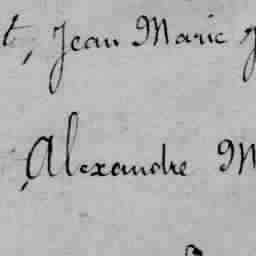 t, Jean Marie
, Alexandre M